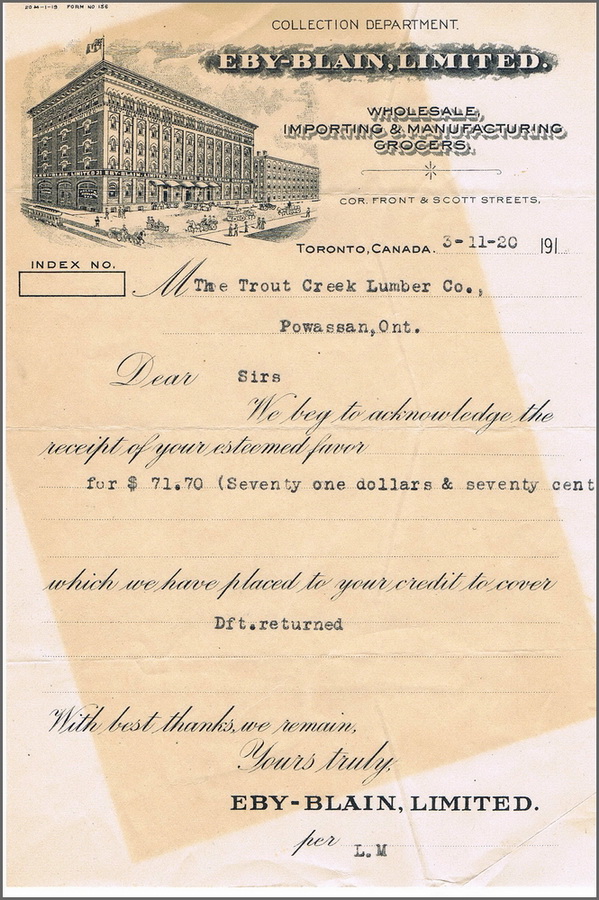 20 M-1-19 FORM NO 156
COLLECTION DEPARTMENT.
EBY-BLAIN, LIMITED.
WHOLESALE,
IMPORTING & MANUFACTURING
GROCERS.
COR. FRONT & SCOTT STREETS,
TORONTO, CANADA. 3-11-20 191
INDEX NO.
M The Trout Creek Lumber Co.,
Powassan, Ont.
Dear Sirs
We beg to acknowledge the
receipt of your esteemed favor
for $ 71.70 (Seventy one dollars & seventy cent
which we have placed to your credit to cover
Dft. returned
With best thanks, we remain,
Yours truly,
EBY-BLAIN, LIMITED.
per L.M